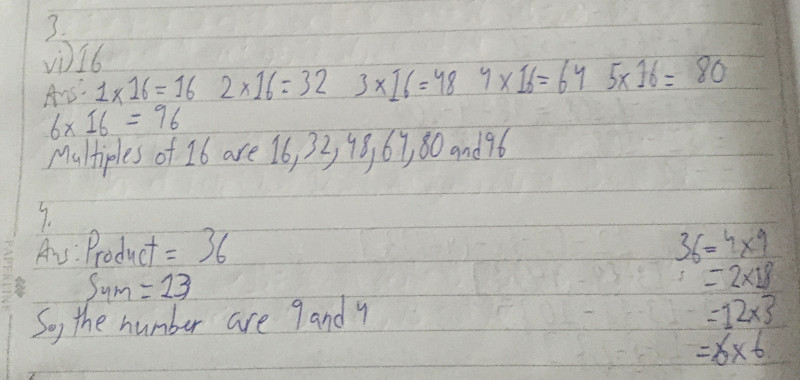 3.
vi) 16
Ans: 1×16=16 2×16=32 3×16=48 4×16=64 5×16= 80
6×16 = 96
Multiples of 16 are 16,32,48,64,80 and 96
4.
Ans: Product = 36
Sum = 13
So, the number are 9 and 4
36=4×9
=2×18
=12×3
=6×6
PAPERLINE